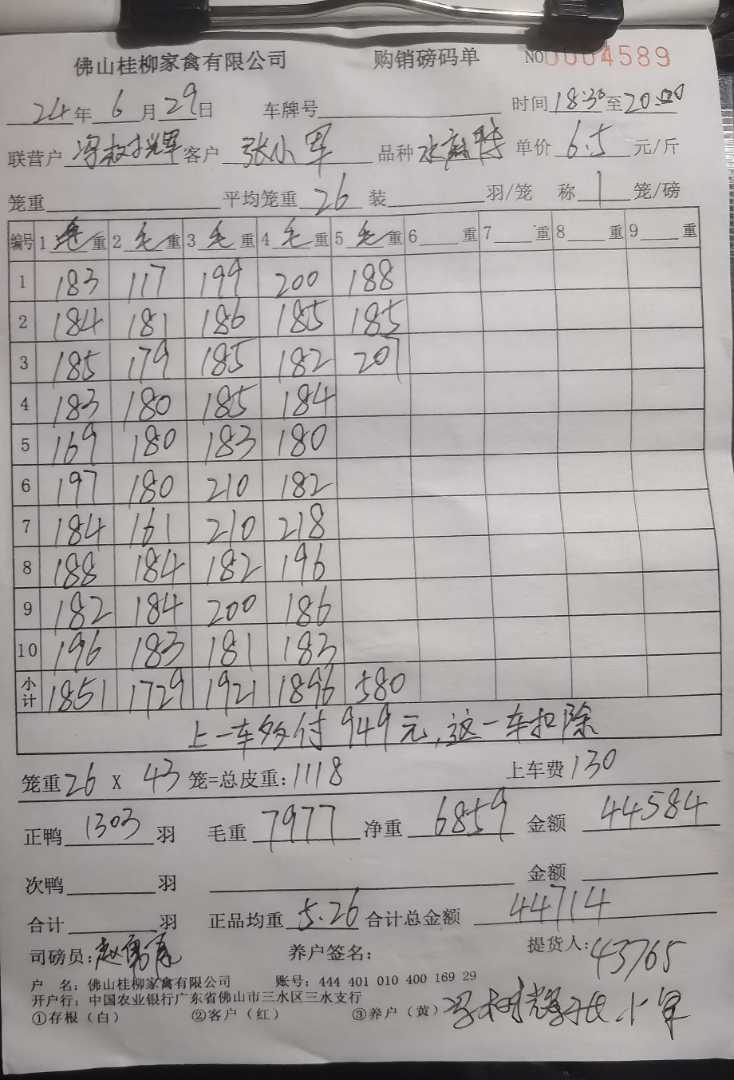 佛山桂柳家禽有限公司 购销磅码单 NO 0004589
24年 6月 29日 车牌号 时间 18:30 至 20:00
联营户 冯树辉 客户 张小军 品种 单价 6.5 元/斤
笼重 平均笼重 26 装 羽/笼 称 1 笼/磅
编号 1 毛 重 2 毛 重 3 毛 重 4 毛 重 5 毛 重 6 重 7 重 8 重 9 重
1 183 117 199 200 188
2 184 181 186 185 185
3 185 179 185 182 207
4 183 180 185 184
5 169 180 183 180
6 197 180 210 182
7 184 161 210 218
8 188 184 182 196
9 182 184 200 186
10 196 183 181 183
小计 1851 1729 1921 1896 580
上一车多付949元,这一车扣除
笼重 26 X 43 笼=总皮重: 1118 上车费 130
正鸭 1303 羽 毛重 7977 净重 6859 金额 44584
次鸭 羽 金额
合计 羽 正品均重 5.26 合计总金额 44714
司磅员: 养户签名: 提货人: 43765
户 名: 佛山桂柳家禽有限公司 账号: 444 401 010 400 169 29
开户行: 中国农业银行广东省佛山市三水区三水支行
①存根(白) ②客户(红) ③养户(黄) 冯树辉 张小军